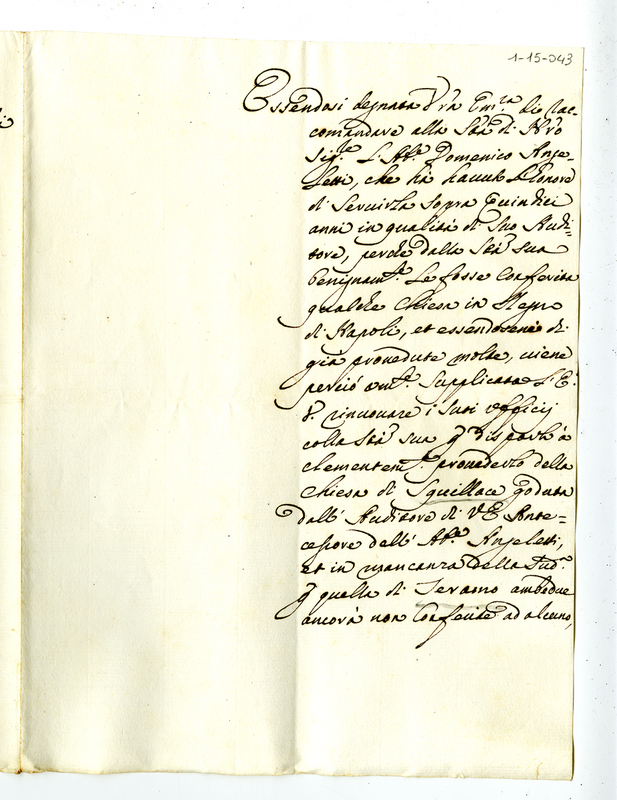 1-15-043
Essendosi degnata V'ra Em.za di rac-
comandare alla S.tà di N'ro
Sig.re L'Ab.e Domenico Ange-
letti, che hà havuto l'honore
di Servirla sopra Quindici
anni in qualità di Suo Audi-
tore, perche dalla S.tà sua
benignam.te Le fosse Conferita
qualche Chiesa in Regno
di Napoli, et essendosene di
già provedute molte, viene
perciò um.te Supplicata L'E.
V. rinuovare i suoi Ufficij
colla S.tà sua p disporlo à
clementem.te provederlo della
Chiesa di Squillace goduta
dall'Auditore di V.E. Ante-
cessore dell'Ab.e Angeletti,
et in mancanza della Sud.a
p quella di Teramo ambedue
ancora non Conferite ad alcuno,